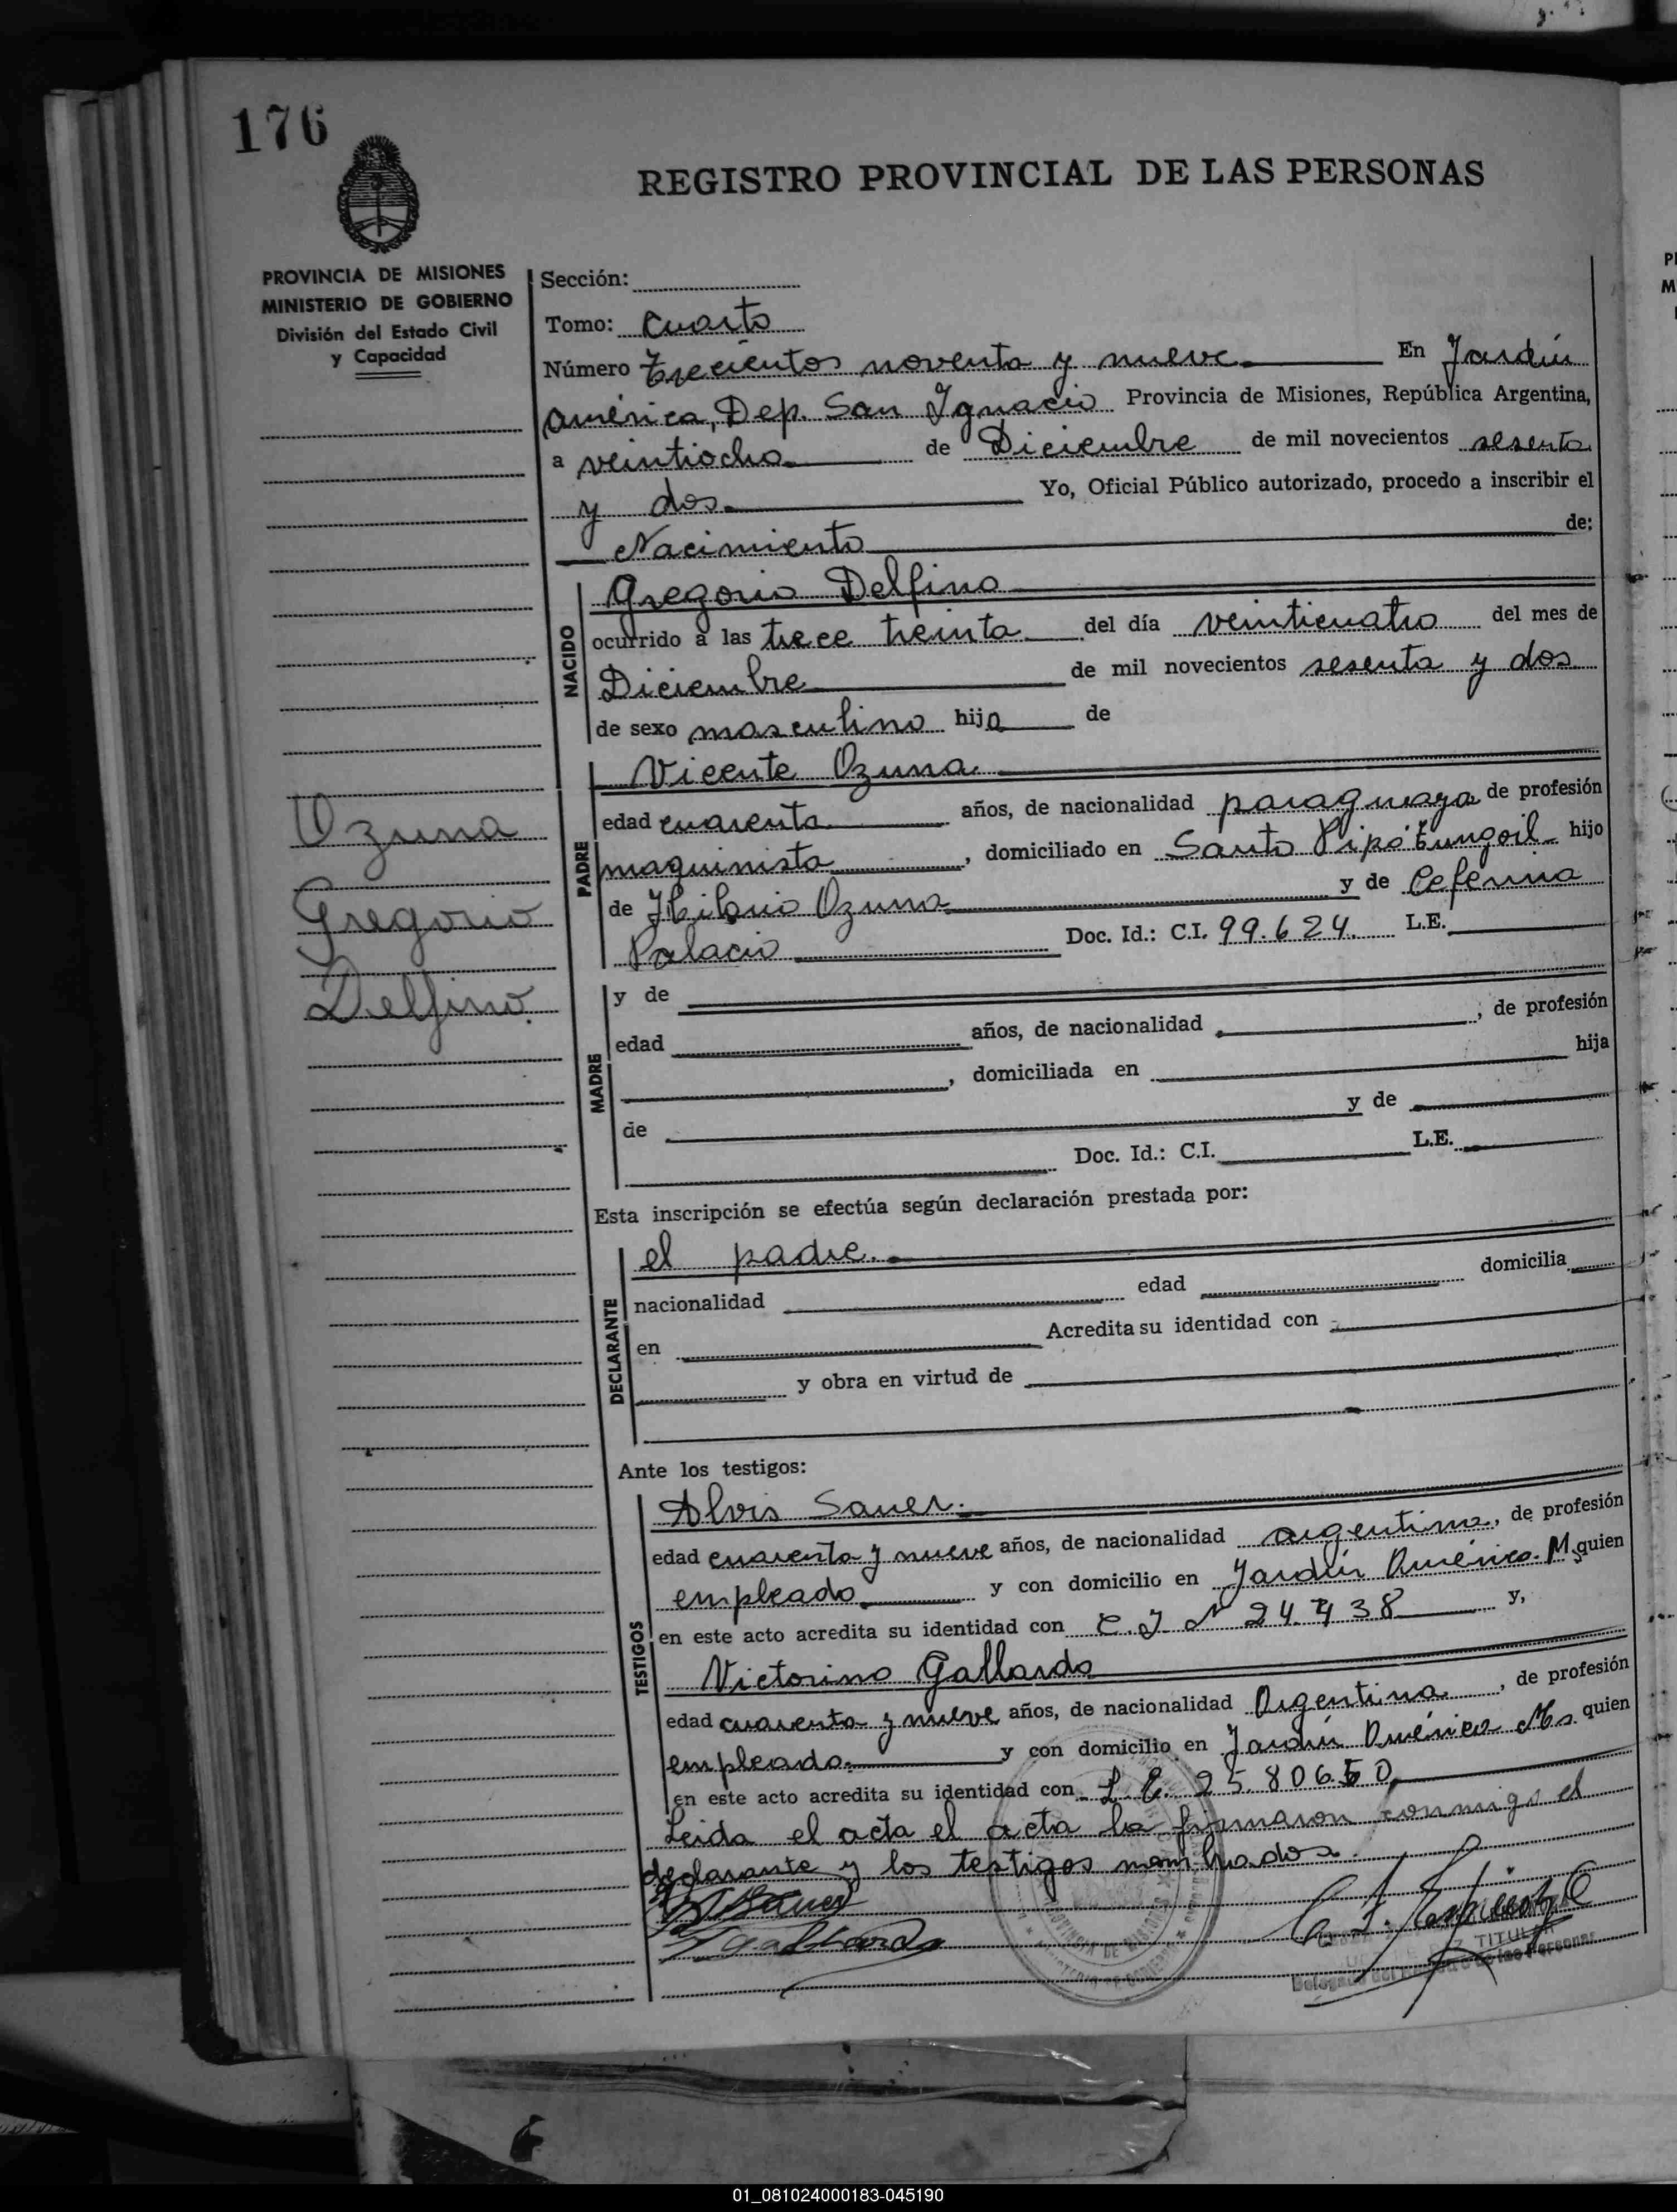 176
REGISTRO PROVINCIAL DE LAS PERSONAS
PROVINCIA DE MISIONES
MINISTERIO DE GOBIERNO
División del Estado Civil
y Capacidad
Sección:
Tomo: Cuarto
Número Trecientos noventa y nueve En Jardín
América, Dep. San Ignacio Provincia de Misiones, República Argentina,
a veintiocho de Diciembre de mil novecientos sesenta
y dos Yo, Oficial Público autorizado, procedo a inscribir el
Nacimiento de:
NACIDO
Gregorio Delfino
ocurrido a las trece treinta del día veinticuatro del mes de
Diciembre de mil novecientos sesenta y dos
de sexo masculino hijo de
PADRE
Vicente Ozuna
edad cuarenta años, de nacionalidad paraguaya de profesión
maquinista, domiciliado en Santo Pipó hijo
de Hilario Ozuna y de Ceferina
Palacio Doc. Id.: C.I. 99.624. L.E.
Ozuna
Gregorio
Delfino.
MADRE
y de
edad años, de nacionalidad , de profesión
, domiciliada en hija
de y de
Doc. Id.: C.I. L.E.
Esta inscripción se efectúa según declaración prestada por:
DECLARANTE
el padre.
nacionalidad edad domicilia
en Acredita su identidad con
y obra en virtud de
Ante los testigos:
TESTIGOS
Alvis Sauer.
edad cuarenta y nueve años, de nacionalidad argentina, de profesión
empleado y con domicilio en Jardín América. M, quien
en este acto acredita su identidad con C.I N 24.438 y,
Victorino Gallardo
edad cuarenta y nueve años, de nacionalidad Argentina, de profesión
empleado y con domicilio en Jardín América Ms quien
en este acto acredita su identidad con L.E. 2580650
Leida el acta el acta la firmaron conmigo el
declarante y los testigos
TITULAR
Delegado del Registro de las Personas
PROVINCIA DE MISIONES
MINISTERIO DE GOBIERNO
01_081024000183-045190